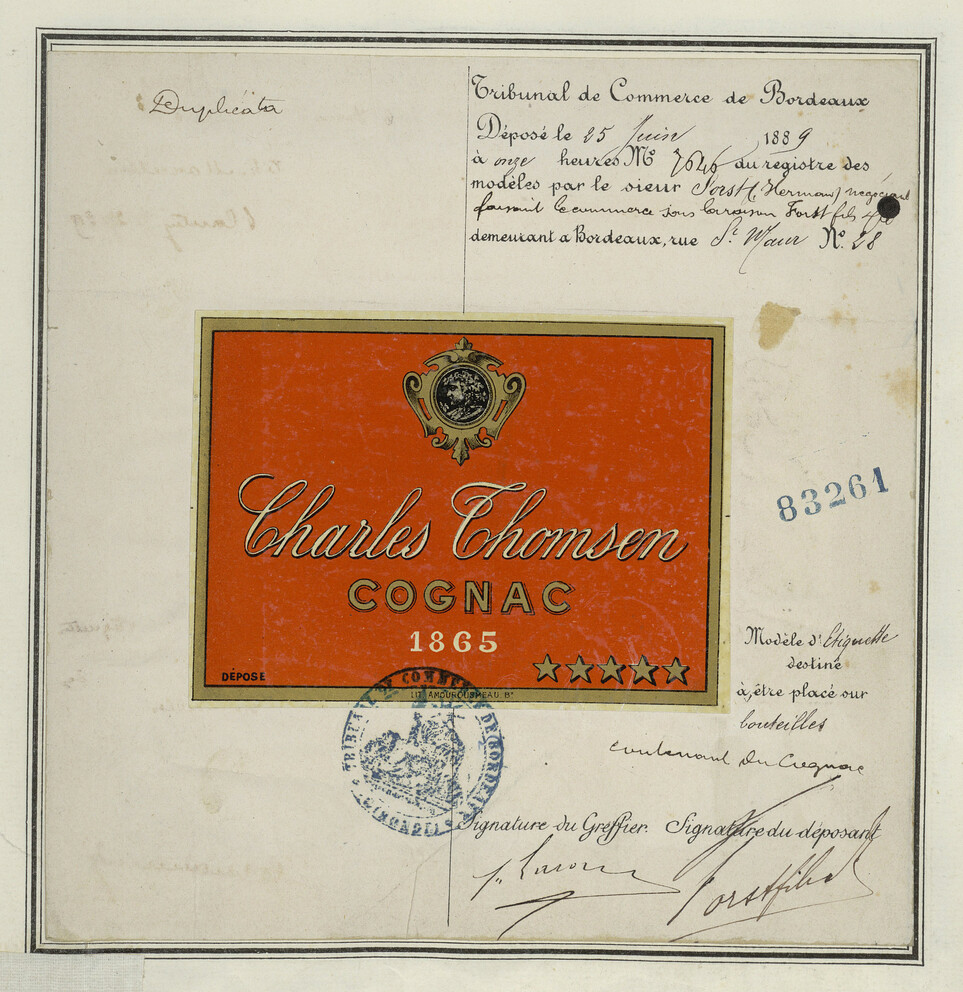 Duplicata
Tribunal de Commerce de Bordeaux
Déposé le 25 Juin 1889
à onze heures Nº 7646 du registre des
modèles par le sieur Forst (Herman) négociant
faisant le commerce sous la raison Forst fils & Cie
demeurant a Bordeaux, rue St Maur Nº. 28
Charles Thomsen
COGNAC
1865
DÉPOSÉ
LIT. AMOUROUS
EAU. Bx
83261
Modèle d'Etiquette
destiné
à être placé sur
bouteilles
contenant du Cognac
TRIBUNAL DE COMMERCE DE BORDEAUX
Signature du Greffier. Signature du déposant
Forst fils